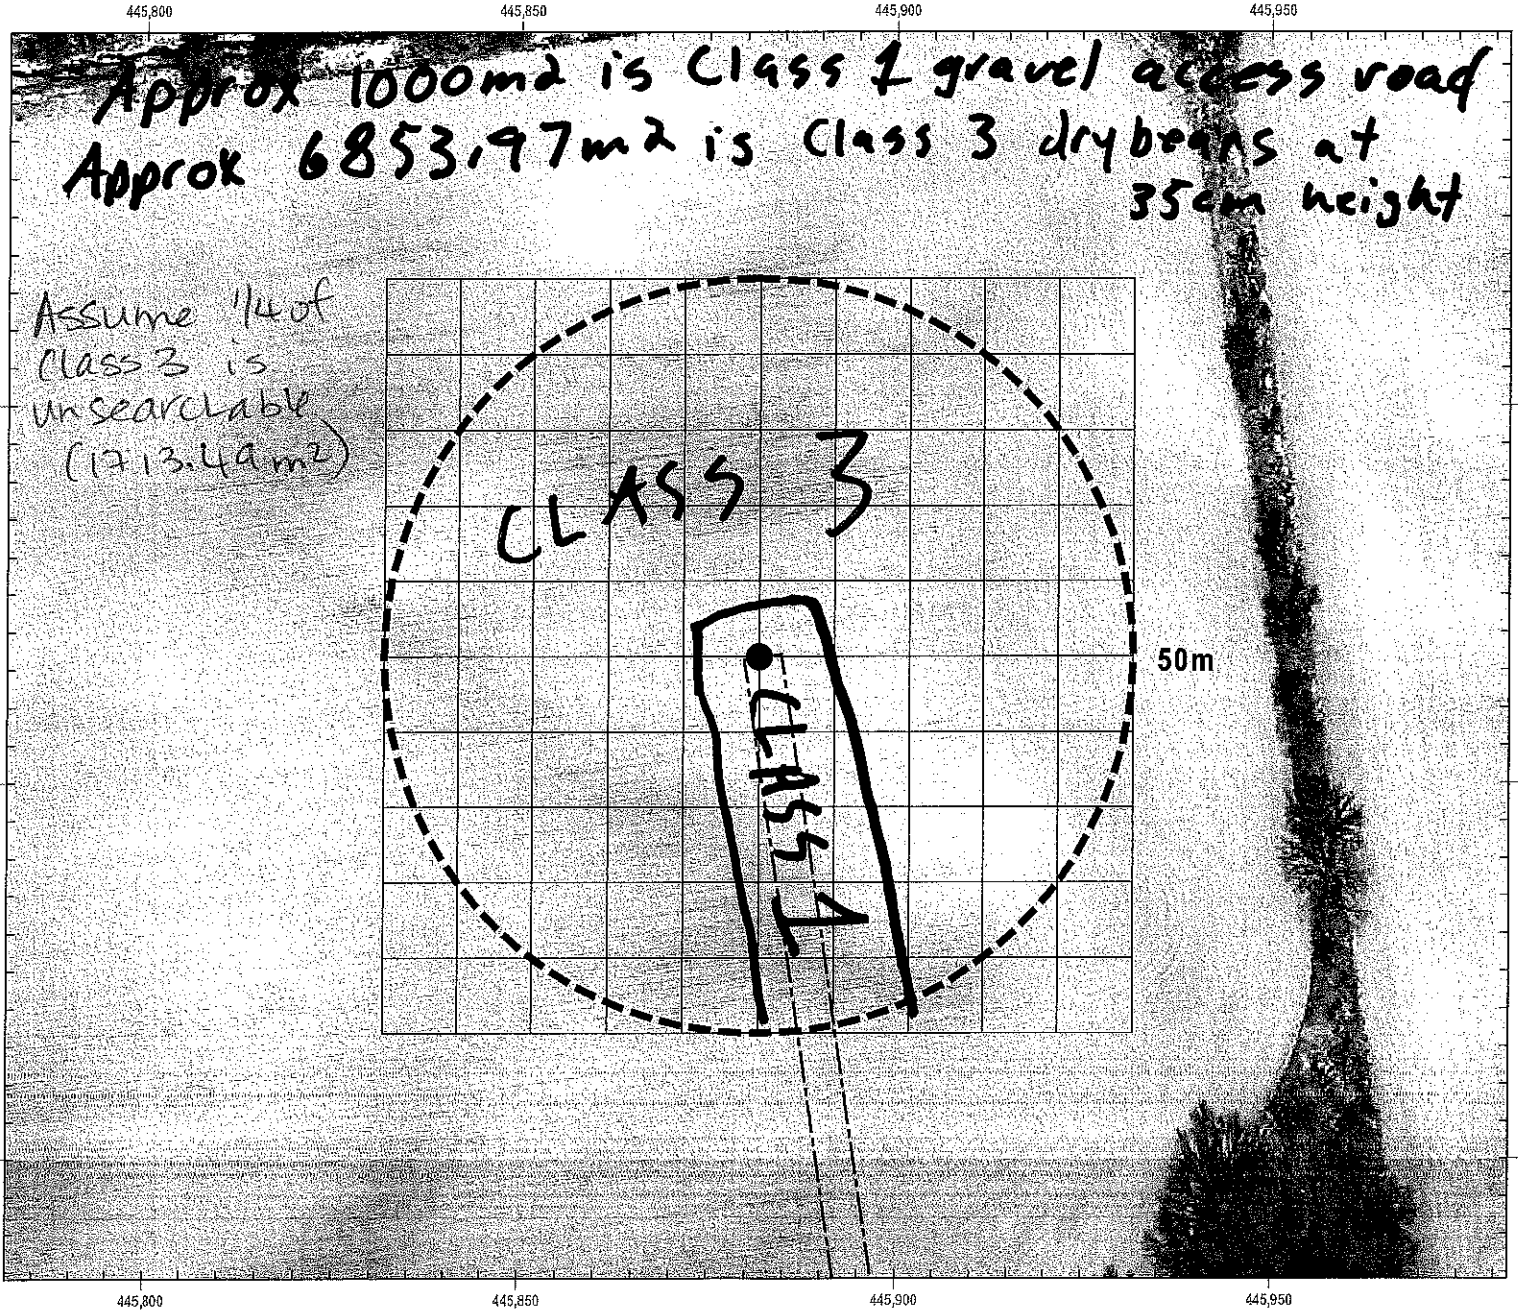 445,800 445,850 445,900 445,950
Approx 1000m2 is Class 1 gravel access road
Approx 6853.97m2 is Class 3 drybeans at
35cm height
Assume 1/4 of
Class 3 is
unsearchable
(1713.49m²)
CLASS 3
50m
CLASS 1
445,800 445,850 445,900 445,950